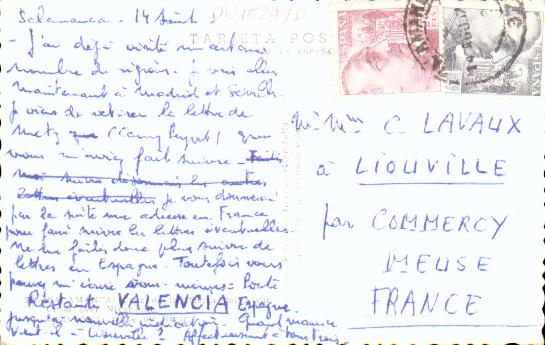 Salamanca - 14 Août
TARJETA POSTAL
- J'ai déjà visité un certain
nombre de régions - Je vais aller
maintenant à Madrid et Séville.
Je viens de retirer la lettre de
Metz que (Camp Peyret) que
vous m'aviez fait suivre - Faites
moi suivre désormais les autres
lettres éventuelles je vous donnerai
par la suite une adresse en France
pour faire suivre les lettres éventuelles.
Ne me faites donc plus suivre de
lettres en Espagne - Toutefois vous
pouvez m'écrire vous-mêmes - Poste
Restante VALENCIA Espagne.
jusqu'à nouvelle indication. Quand Maurice
vient-il à Liouville ? Affectueusement à tous
ESPAÑA
ESPAÑA
C. LAVAUX
à LIOUVILLE
par COMMERCY
MEUSE
FRANCE